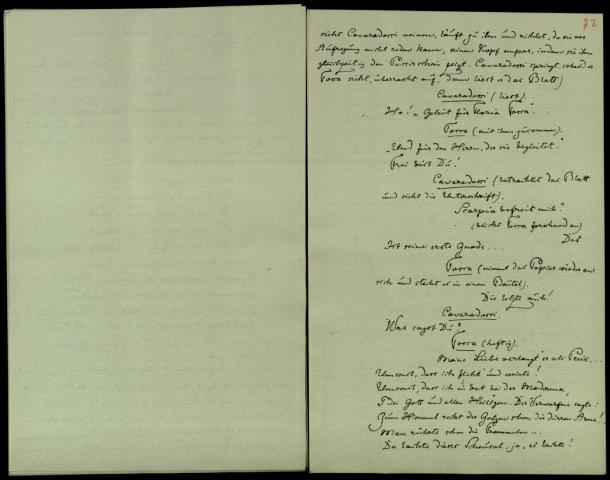 72
sieht Cavaradossi weinen, läuft zu ihm und richtet, da sie vor
Aufregung nicht reden kann, seinen Kopf empor, indem sie ihm
gleichzeitig den Passirschein zeigt. Cavaradossi springt, sobald er
Tosca sieht, überrascht auf, dann liest er das Blatt)
Cavaradossi (liest).
Ha! „Geleit für Floria Tosca"...
Tosca (mit ihm zusammen).
„Und für den Herrn, der sie begleitet."
Frei bist Du!
Cavaradossi (betrachtet das Blatt
und sieht die Unterschrift).
Scarpia befreit mich?
(blickt Tosca forschend an)
Das
Ist seine erste Gnade...
Tosca (nimmt das Papier wieder an
sich und steckt es in einen Beutel).
Die letzte auch!
Cavaradossi.
Was sagst Du?
Tosca (heftig).
Meine Liebe verlangt' er als Preis...
Umsonst, dass ich fleht' und weinte!
Umsonst, dass ich bat bei der Madonna,
Bei Gott und allen Heil'gen. Der Verworfne sagte:
Zum Himmel reckt der Galgen schon die dürren Arme!
Man rührte schon die Trommeln...
Da lachte dieser Scheusal, ja, er lachte!